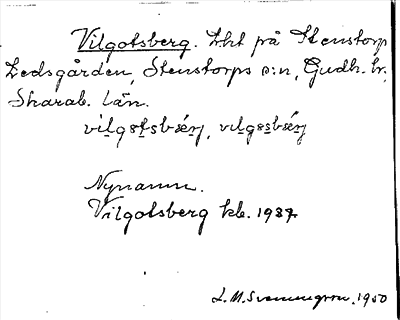 Vilgotsberg. Lht på Stenstorp
Dedsgården, Stenstorps s:n, Gudh. hr,
Skarab. län.
vilgɵtsbærj, vilgɵsbærj
Nynamn.
Vilgotsberg kb. 1937
L. M. Svenungson. 1950